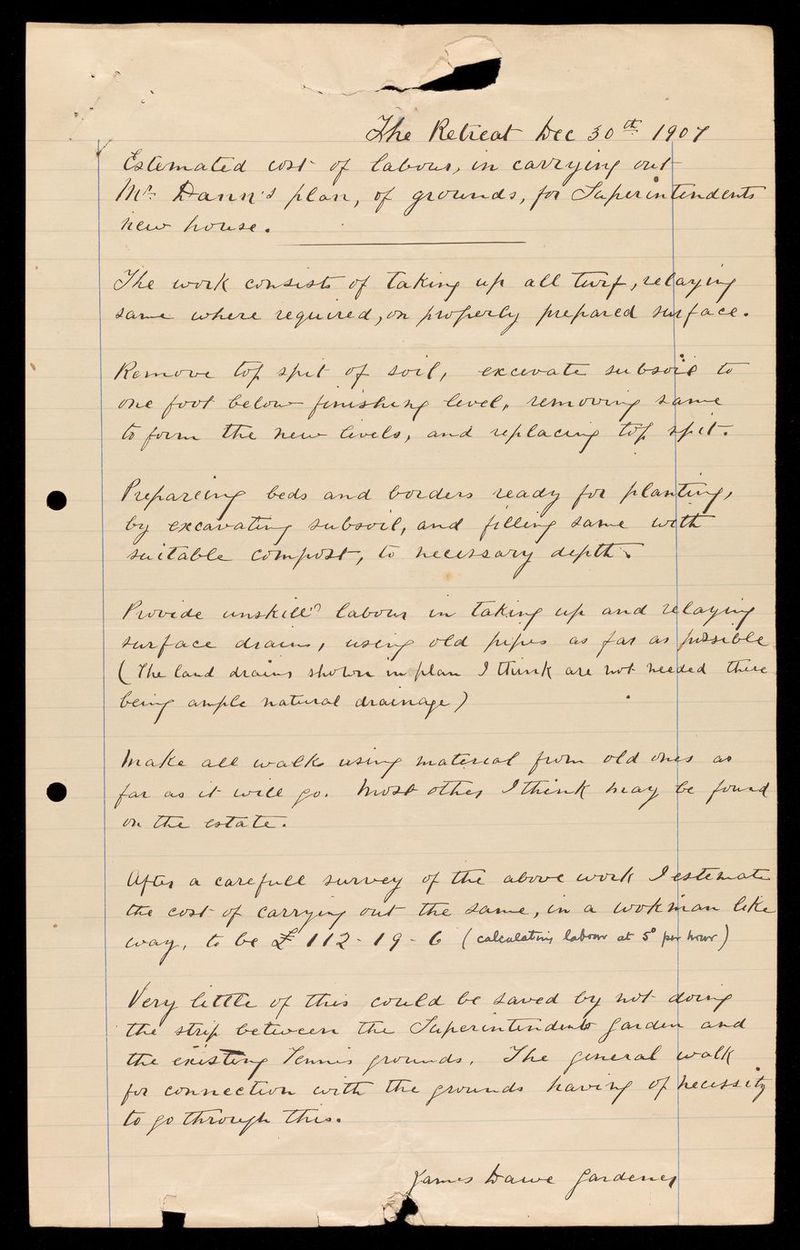 The Retreat Dec 30th 1907
Estemated cost of labour, in carrying out
Mr. Dann's plan, of grounds, for Superintendents
new house.
The work consists of taking up all turf, relaying
same where required, on properly prepared surface.
Remove top spit of soil, excevate subsoil to
one foot below finishing level, removing same
to form the new levels, and replacing top spit.
Prepareing beds and borders ready for planting,
by excavating subsoil, and filling same with
suitable compost, to necessary depth.
Provide unskilld labour in taking up and relaying
surface drains, using old pipes as far as possible
(The land drains shown in plan I think are not needed there
being ample natural drainage)
Make all walks using material from old ones as
far as it will go. Most other I think may be found
on the estate.
After a carefull survey of the above work I estemate
the cost of carrying out the same, in a workman like
way, to be £112-19-6 (calculating labour at 5d per hour)
Very little of this could be saved by not doing
the strip between the Superintendents garden and
the existing Tennis grounds. The general walk
for connection with the grounds having of necessity
to go through this.
James Dawe Gardener